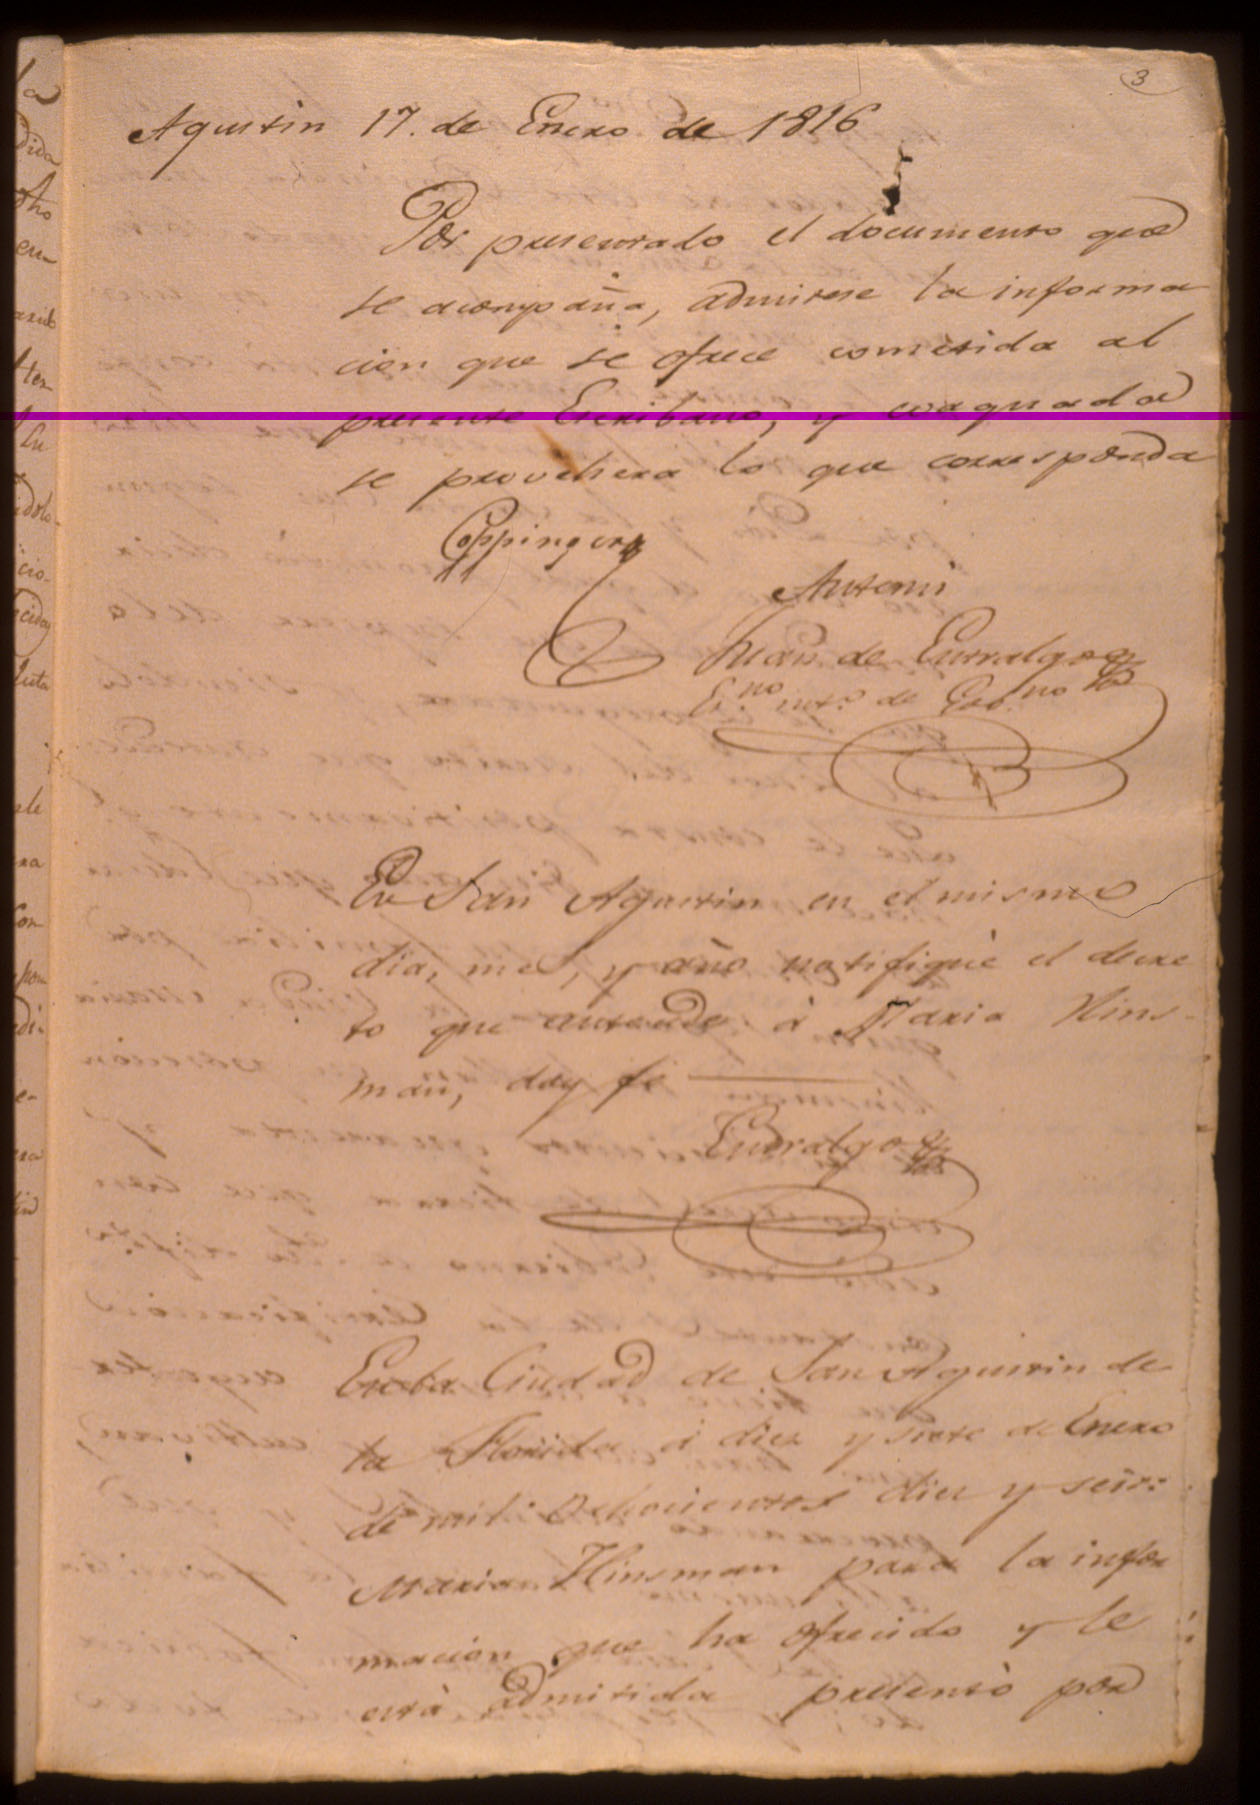 3
Agustin 17. de Enero de 1816
Por presentado el documento que
se acompaña, admitese la informa
cion que se ofrece cometida al
presente Escribano, y evaquada
se provehera lo que corresponda
Coppinger
Antemi
Juan de Entralgo
Es.no int.o de Gov.no
En San Agustin en el mismo
dia, mes, y año notifiqué el decre
to que antecede à Maria Hins-
man, doy fe
Entralgo
En la Ciudad de San Agustin de
la Florida à diez y siete de Enero
de mil Ochocientos diez y seis:
Maria Hinsman para la infor
macion que ha ofrecido y le
està admitida presentò por